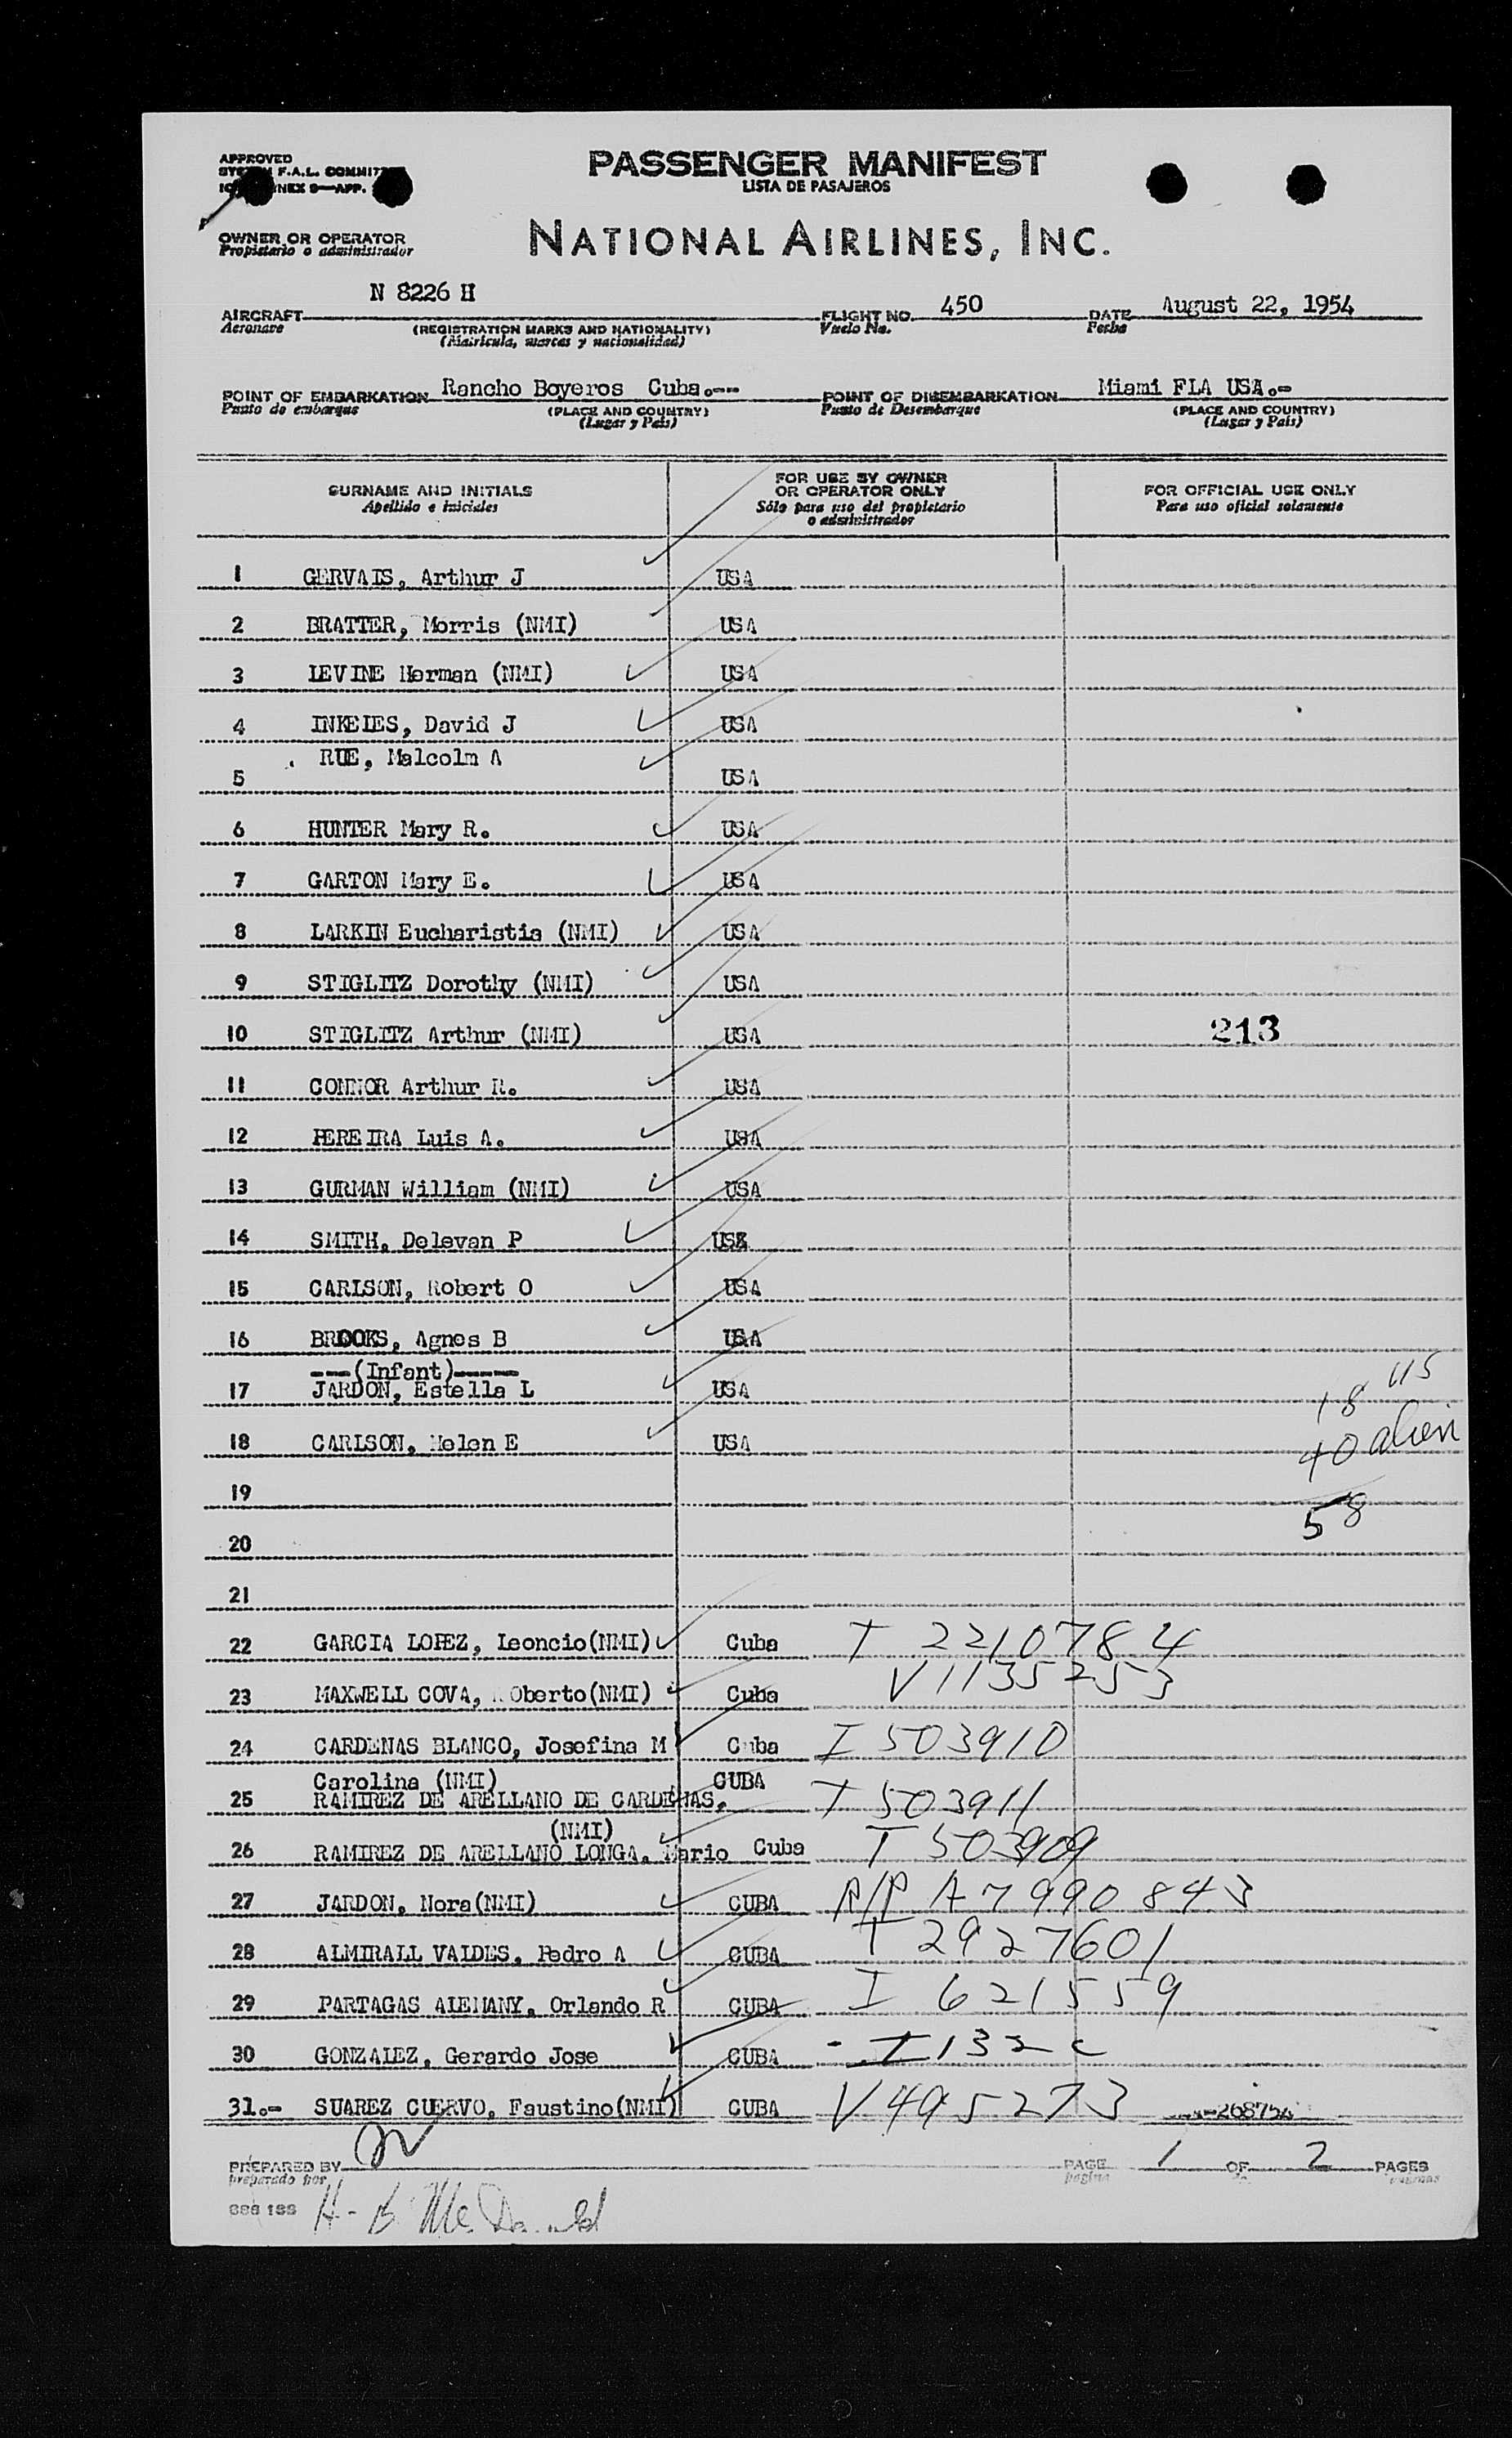 APPROVED
PASSENGER MANIFEST
F.A.L.
LISTA DE PASAJEROS
OWNER OR OPERATOR
Propietario o administrador
NATIONAL AIRLINES, INC.
N 8226 H
AIRCRAFT
Aeronave
(REGISTRATION MARKS AND NATIONALITY)
(Matricula, marcas y nacionalidad)
FLIGHT NO. 450
Vuelo No.
DATE August 22, 1954
Fecha
POINT OF EMBARKATION Rancho Boyeros Cuba.--
Punto de embarque
(PLACE AND COUNTRY)
(Lugar y País)
POINT OF DISEMBARKATION Miami FLA USA.-
Punto de Desembarque
(PLACE AND COUNTRY)
(Lugar y País)
SURNAME AND INITIALS
Apellido e iniciales
FOR USE BY OWNER
OR OPERATOR ONLY
Sólo para uso del propietario
o administrador
FOR OFFICIAL USE ONLY
Para uso oficial solamente
1 GERVAIS, Arthur J USA
2 BRATTER, Morris (NMI) USA
3 LEVINE Herman (NMI) USA
4 INKELES, David J USA
RUE, Malcolm A
5 USA
6 HUNTER Mary R. USA
7 GARTON Mary E. USA
8 LARKIN Eucharistia (NMI) USA
9 STIGLITZ Dorothy (NMI) USA
10 STIGLITZ Arthur (NMI) USA 213
11 CONNOR Arthur R. USA
12 PEREIRA Luis A. USA
13 GURMAN William (NMI) USA
14 SMITH, Delevan P USA
15 CARLSON, Robert O USA
16 BROOKS, Agnes B USA
---(Infant)----
17 JARDON, Estella L USA 18 US
18 CARLSON, Helen E USA 40 alien
19
58
20
21
22 GARCIA LOPEZ, Leoncio(NMI) Cuba T 2210784
23 MAXWELL COVA, ROberto(NMI) Cuba V1135253
24 CARDENAS BLANCO, Josefina M Cuba I 503910
Carolina (NMI) CUBA
25 RAMIREZ DE ARELLANO DE CARDENAS, T 503911
(NMI)
26 RAMIREZ DE ARELLANO LONGA, Mario Cuba T 503909
27 JARDON, Nora(NMI) CUBA P/P A7990843
28 ALMIRALL VALDES, Pedro A CUBA T 2927601
29 PARTAGAS ALEMANY, Orlando R CUBA I 621559
30 GONZALEZ, Gerardo Jose CUBA - I 132 c
31.- SUAREZ CUERVO, Faustino(NMI) CUBA V495273
PREPARED BY
preparado por
PAGE 1 OF 2 PAGES
pagina
H-B McDonald